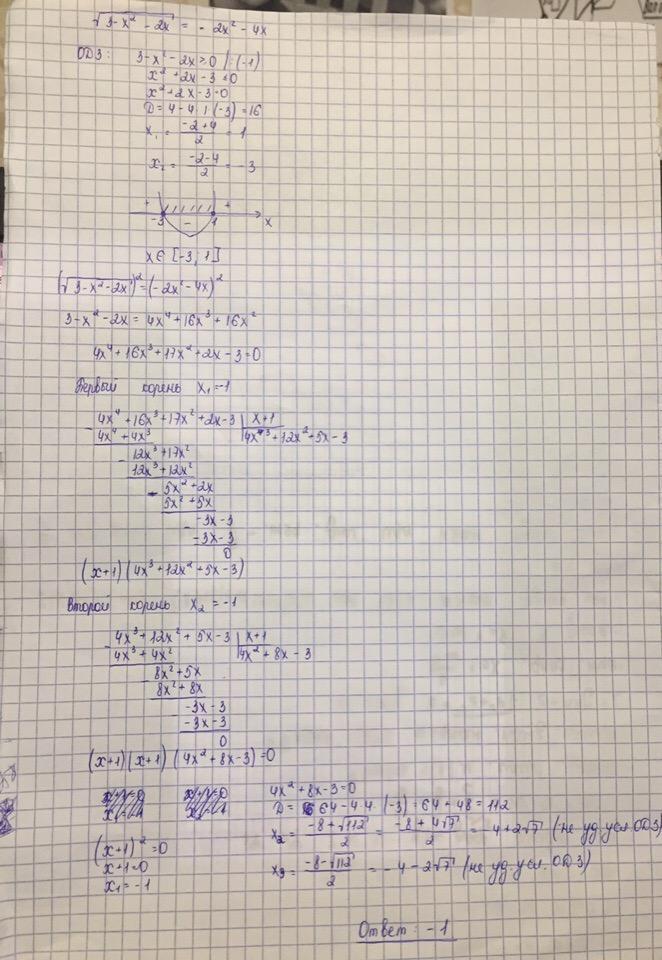 √(3-x²-2x) = -2x²-4x
ОДЗ: 3-x²-2x≥0 |:(-1)
x²+2x-3≤0
x²+2x-3=0
D=4-4·1·(-3)=16
x₁ = (-2+4)/2 = 1
x₂ = (-2-4)/2 = -3
+ - +
-3 1 x
x ∈ [-3; 1]
(√(3-x²-2x))² = (-2x²-4x)²
3-x²-2x = 4x⁴+16x³+16x²
4x⁴+16x³+17x²+2x-3=0
Первый корень x₁=-1
4x⁴+16x³+17x²+2x-3 | x+1
4x⁴+4x³ | 4x³+12x²+5x-3
12x³+17x²
12x³+12x²
5x²+2x
5x²+5x
-3x-3
-3x-3
0
(x+1)(4x³+12x²+5x-3)
Второй корень x₂=-1
4x³+12x²+5x-3 | x+1
4x³+4x² | 4x²+8x-3
8x²+5x
8x²+8x
-3x-3
-3x-3
0
(x+1)(x+1)(4x²+8x-3)=0
(x+1)²=0
x+1=0
x₁=-1
4x²+8x-3=0
D= 64-4·4·(-3)=64+48=112
x₂ = (-8+√112)/2 = (-8+4√7)/2 = -4+2√7 (не уд. усл. ОДЗ)
x₃ = (-8-√112)/2 = -4-2√7 (не уд. усл. ОДЗ)
Ответ: -1